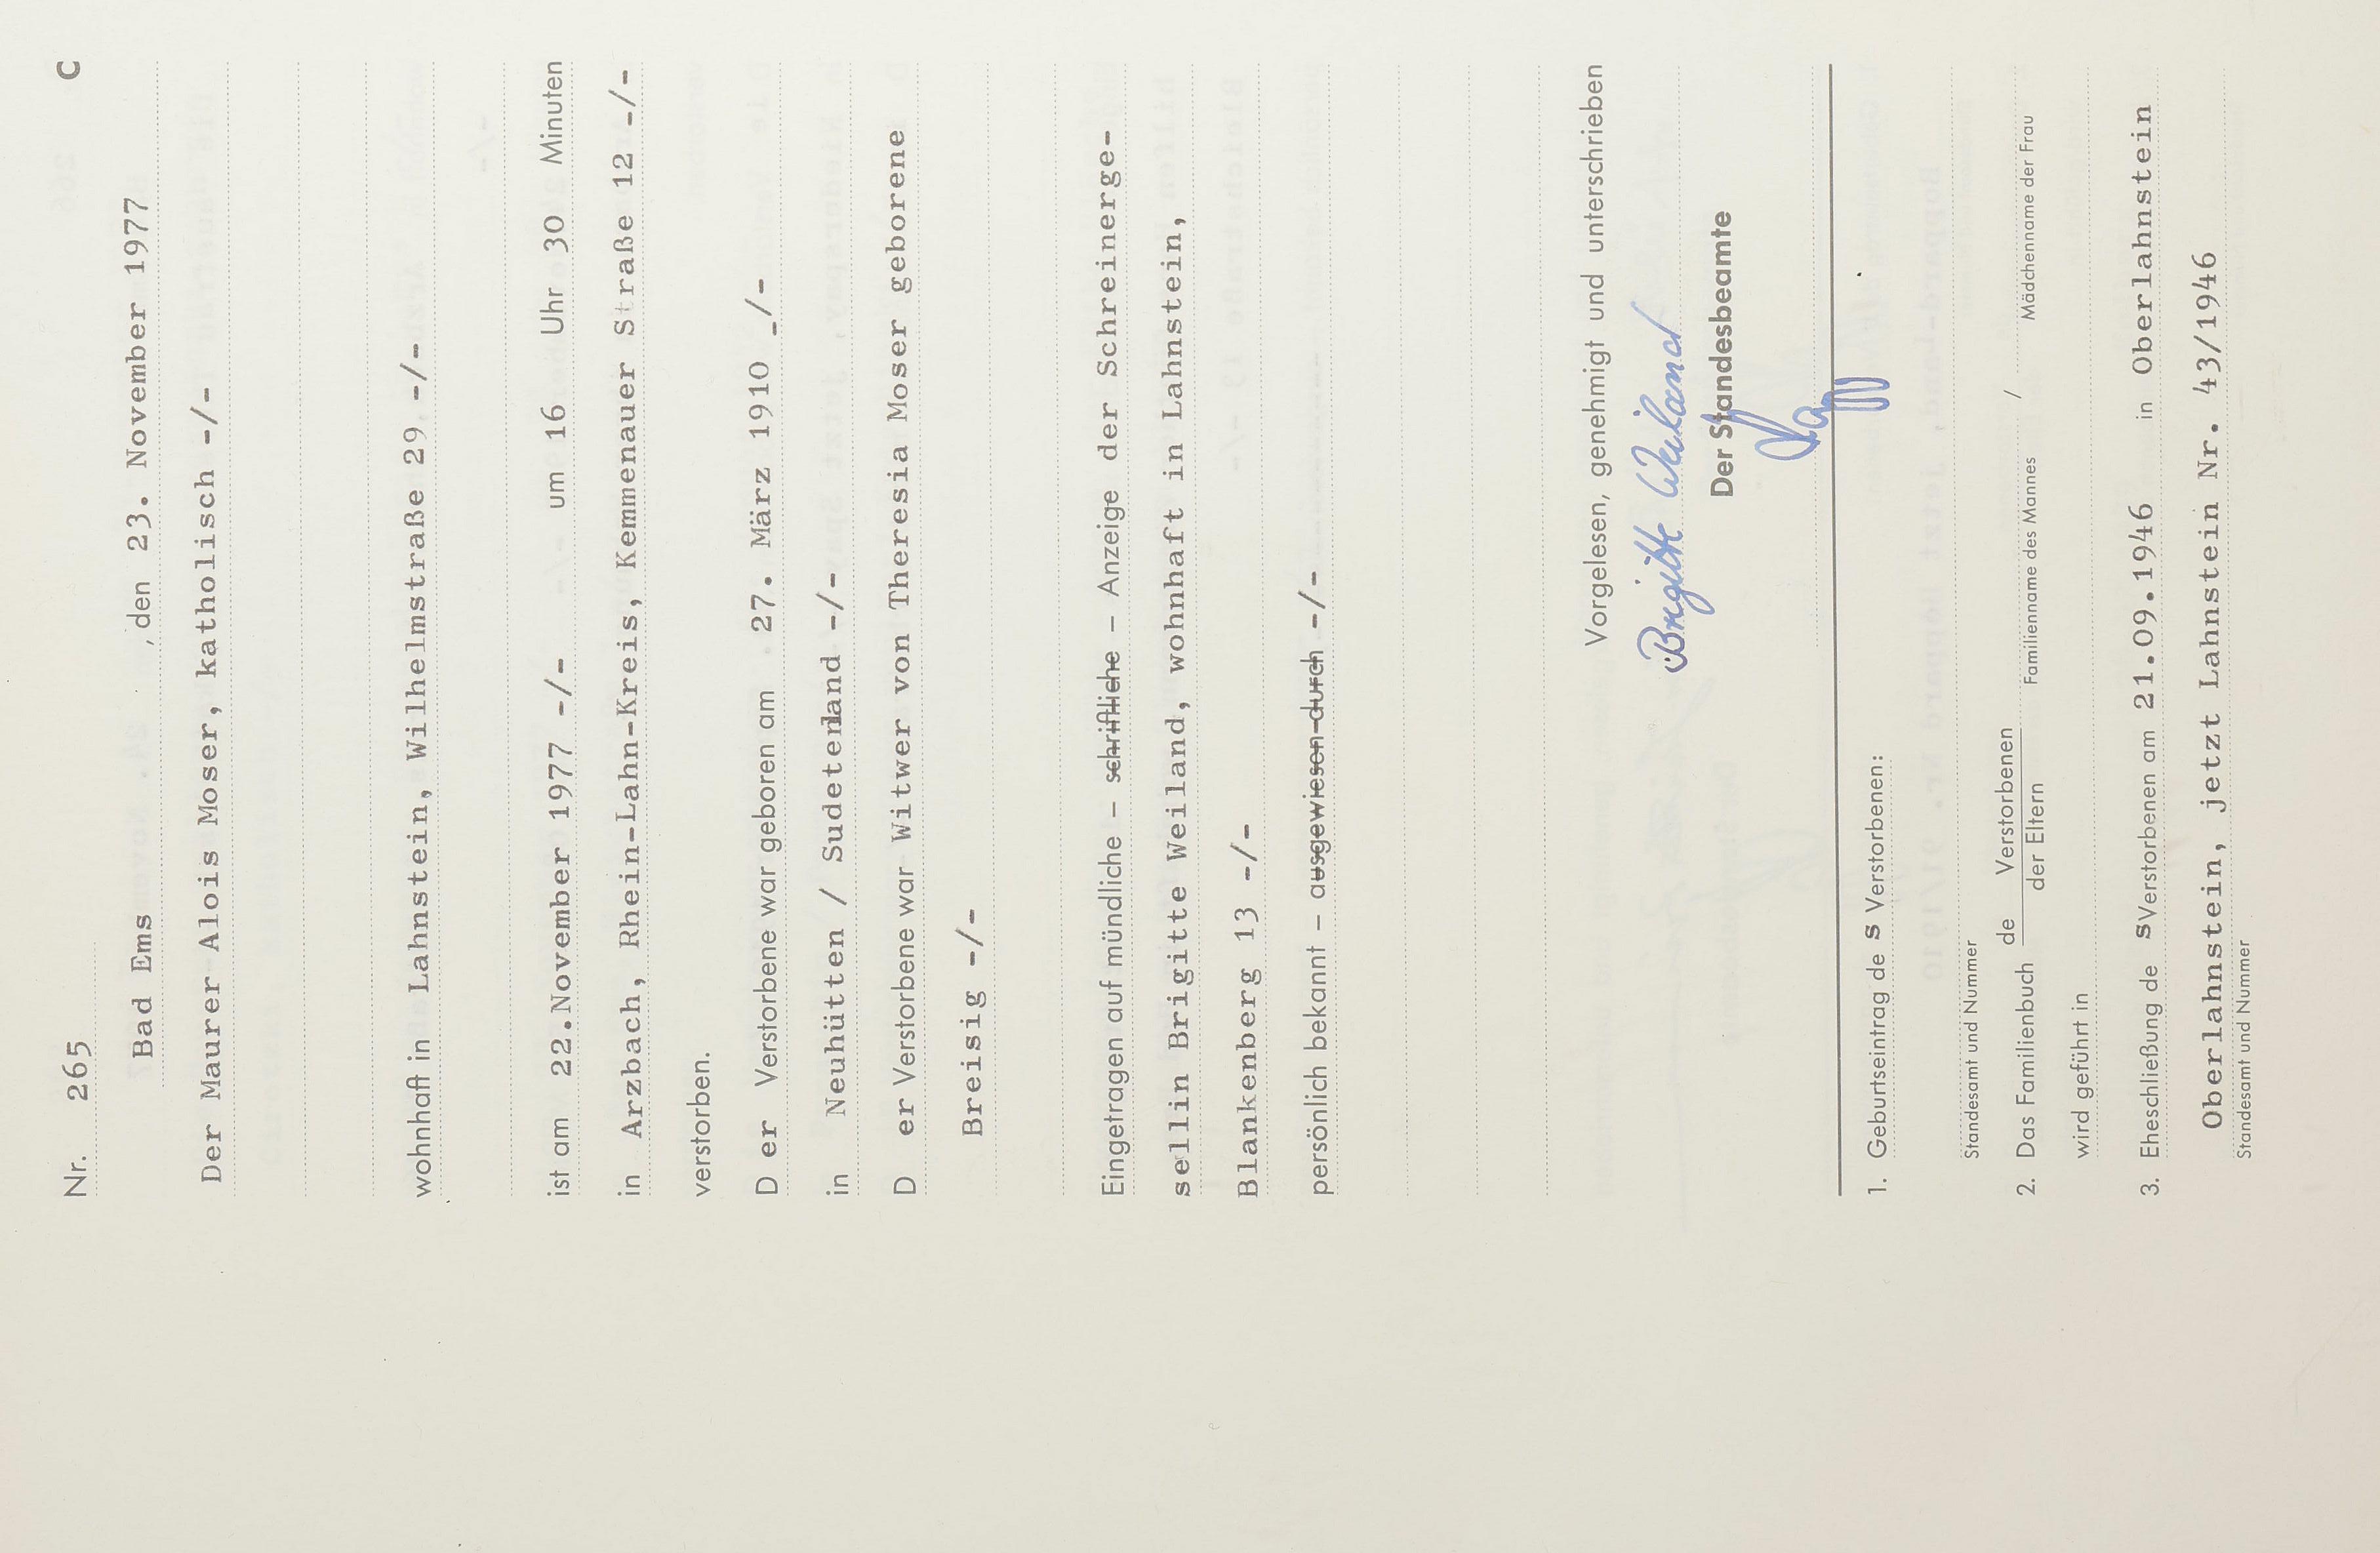 Nr. 265 C
Bad Ems , den 23. November 1977
Der Maurer Alois Moser, katholisch -/-
wohnhaft in Lahnstein, Wilhelmstraße 29 -/-
ist am 22.November 1977 -/- um 16 Uhr 30 Minuten
in Arzbach, Rhein-Lahn-Kreis, Kemmenauer Straße 12 -/-
verstorben.
D er Verstorbene war geboren am 27. März 1910 -/-
in Neuhütten / Sudetenland -/-
D er Verstorbene war Witwer von Theresia Moser geborene
Breisig -/-
Eingetragen auf mündliche – schriftliche – Anzeige der Schreinerge-
sellin Brigitte Weiland, wohnhaft in Lahnstein,
Blankenberg 13 -/-
persönlich bekannt – ausgewiesen durch -/-
Vorgelesen, genehmigt und unterschrieben
Brigitte Weiland
Der Standesbeamte
1. Geburtseintrag de s Verstorbenen:
Standesamt und Nummer
2. Das Familienbuch de Verstorbenen / der Eltern Familienname des Mannes / Mädchenname der Frau
wird geführt in
3. Eheschließung de s Verstorbenen am 21.09.1946 in Oberlahnstein
Oberlahnstein, jetzt Lahnstein Nr. 43/1946
Standesamt und Nummer